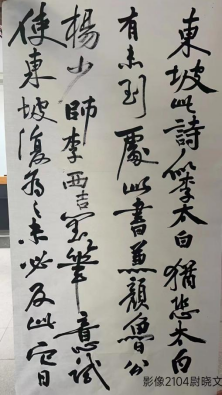 東坡此詩似李太白猶恐太白
有未到處此書兼顏魯公
楊少師李西台筆意試
使東坡復為之未必及此它日
影像2104尉晓文